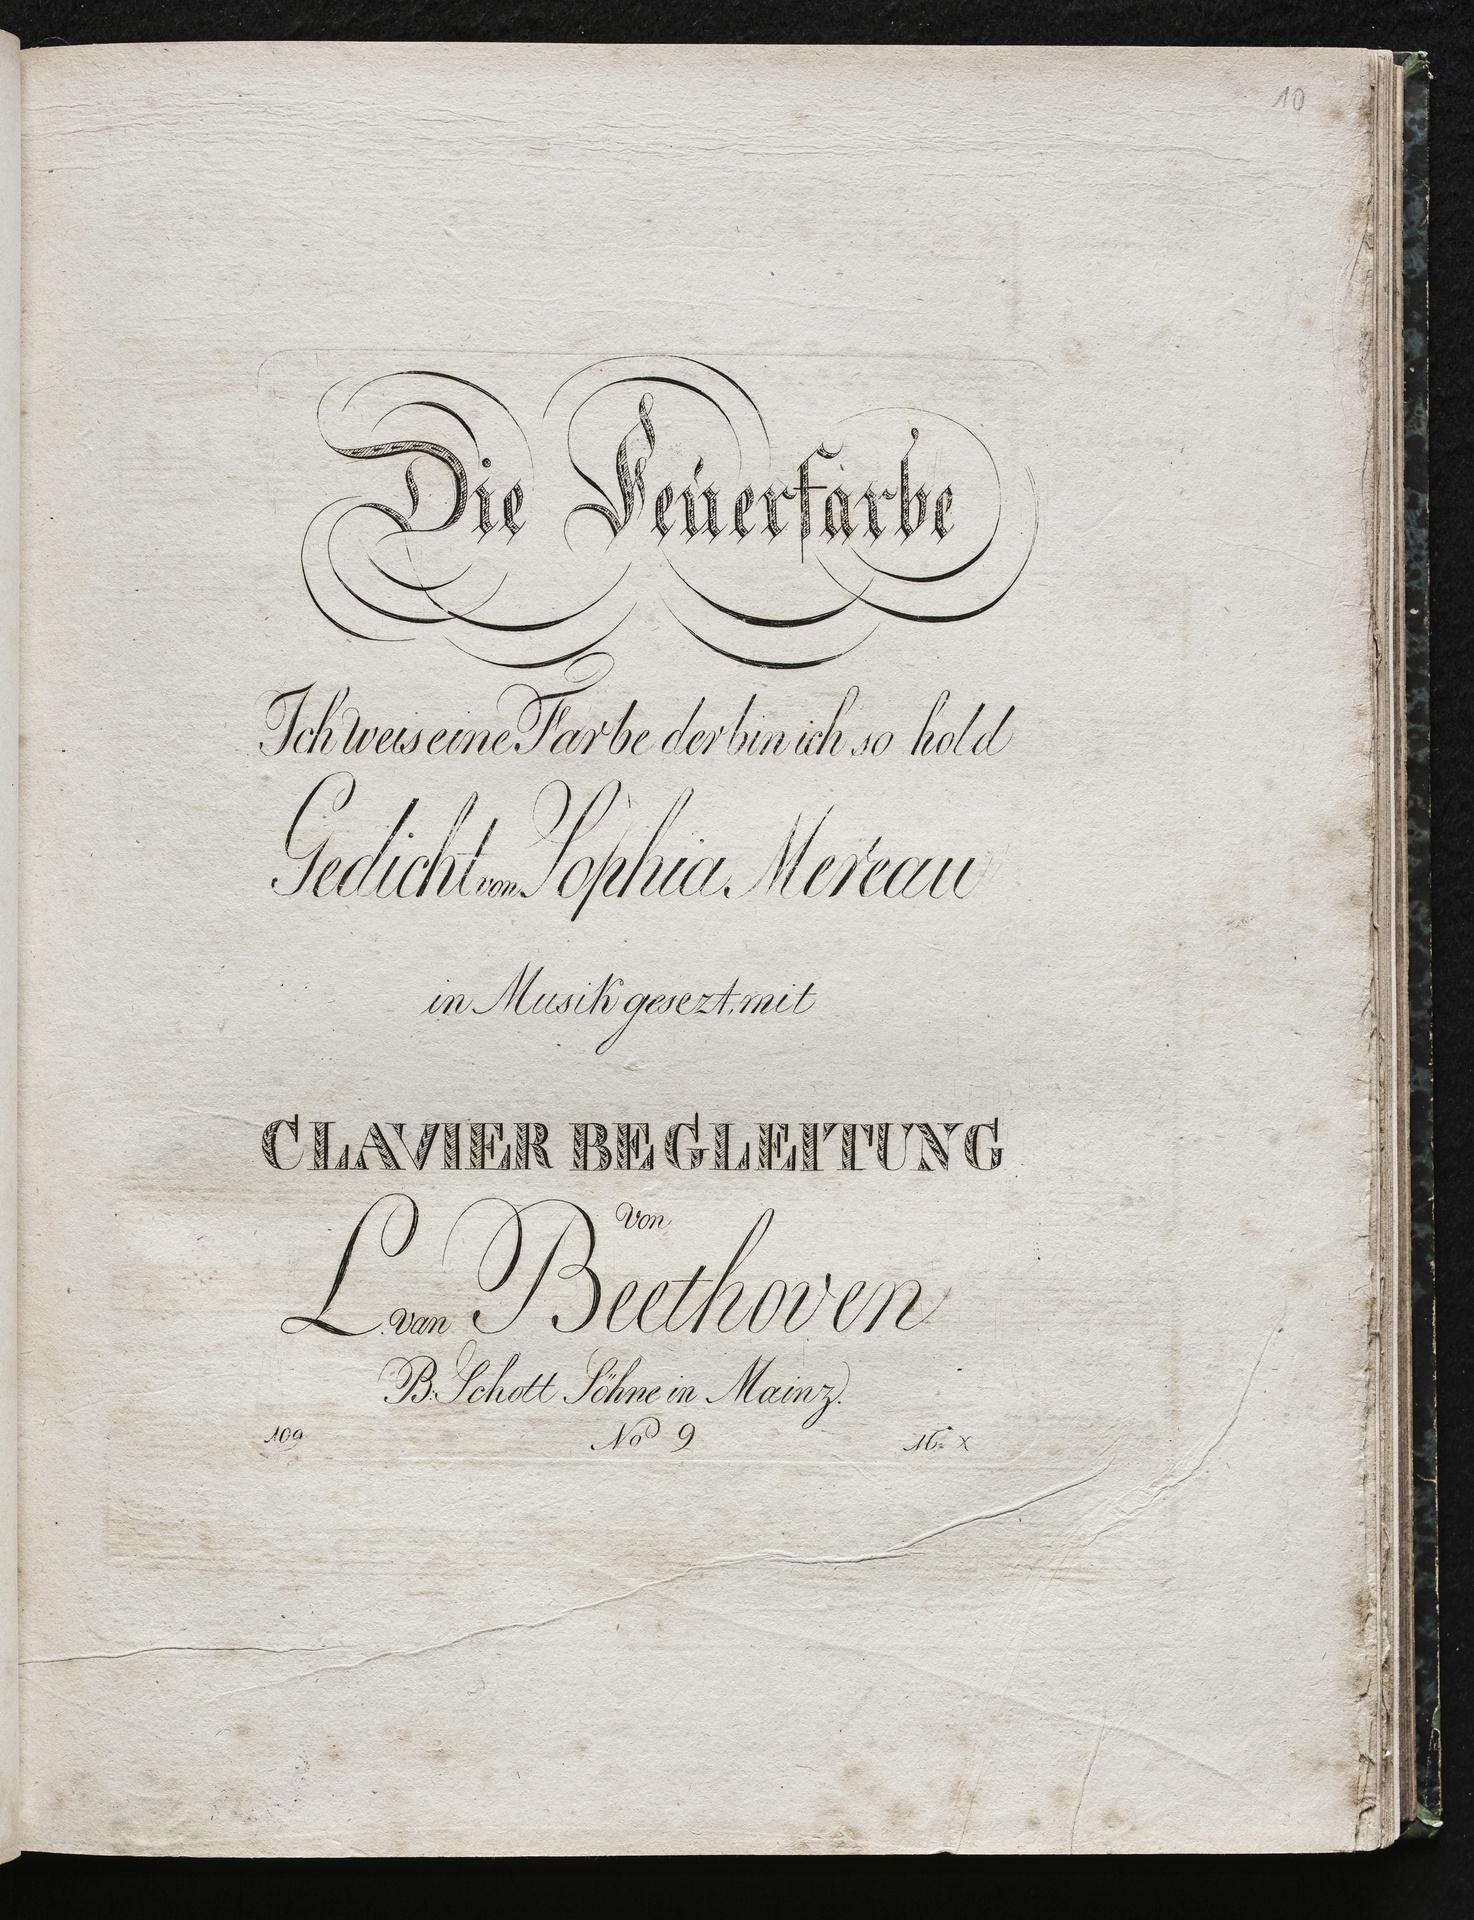 10
Die Feuerfarbe
Ich weis eine Farbe der bin ich so hold
Gedicht von Sophia Mereau
in Musik gesezt, mit
CLAVIER BEGLEITUNG
von
L. van Beethoven
B: Schott Söhne in Mainz.
109 No 9 16: x